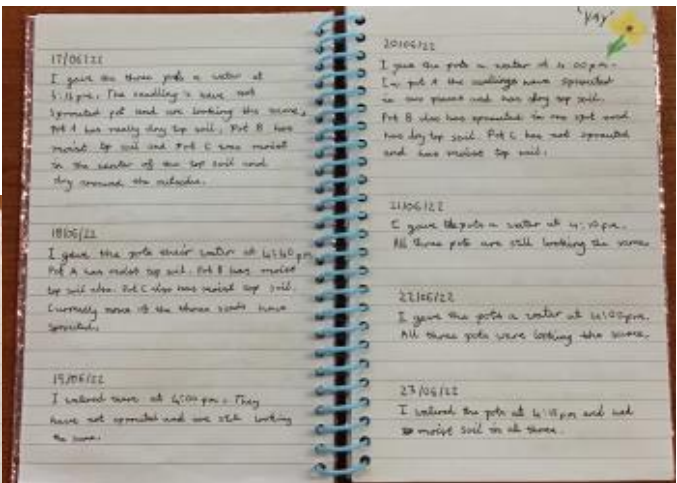 17/06/22
I gave the three pots a water at
5:15pm. The seedlings have not
sprouted yet and are looking the same.
Pot A has really dry top soil, Pot B has
moist top soil and Pot C was moist
in the center of the top soil and
dry around the outside.
18/06/22
I gave the pots their water at 4:40pm
Pot A has moist top soil. Pot B has moist
top soil also. Pot C also has moist top soil.
Currently none of the three seeds have
sprouted.
19/06/22
I watered them at 4:00 pm. They
have not sprouted and are still looking
the same.
"YAY"
20/06/22
I gave the pots a water at 4:00pm.
In pot A the seedlings have sprouted
in two places and has dry top soil.
Pot B also has sprouted in one spot and
has dry top soil. Pot C has not sprouted
and has moist top soil.
21/06/22
I gave the pots a water at 4:10pm.
All three pots are still looking the same.
22/06/22
I gave the pots a water at 4:00pm.
All three pots were looking the same.
23/06/22
I watered the pots at 4:15pm and had
moist soil in all three.